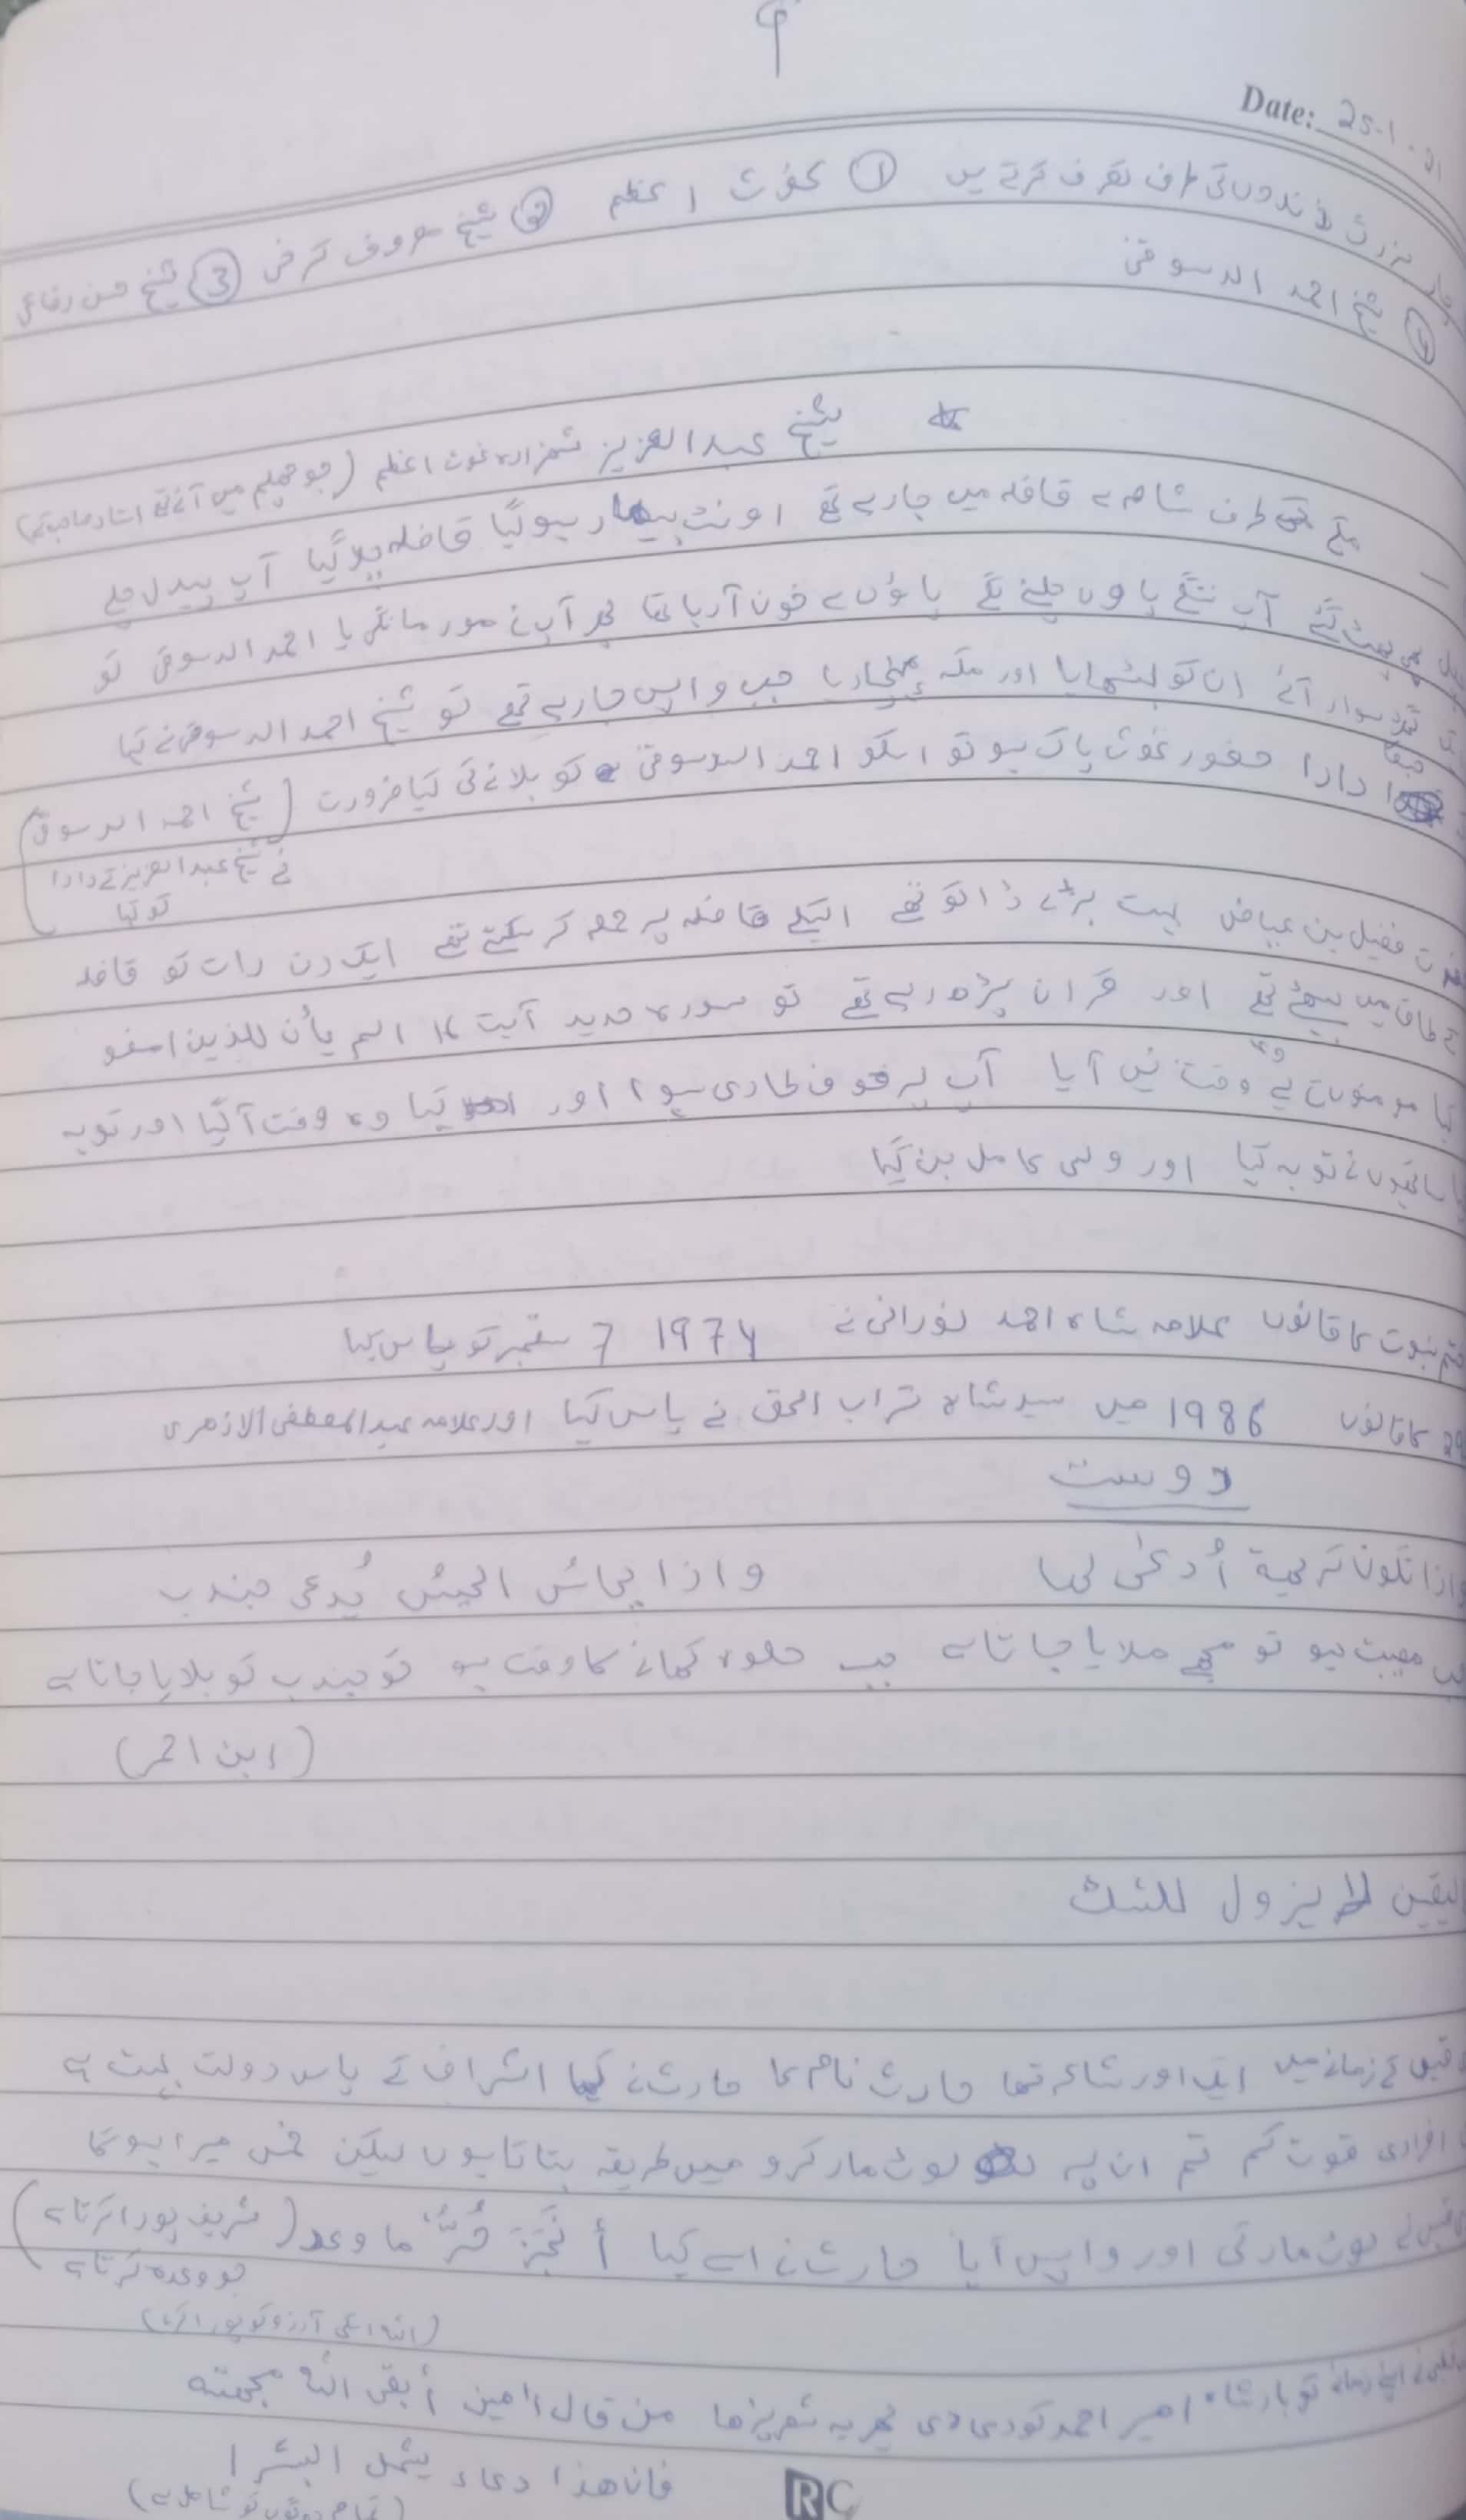 9
Date: 25-1-21
بزرگ زندوں کی طرف تصرف کرتے ہیں ① غوث اعظم ② شیخ معروف کرخی ③ شیخ حسن رفاعی
④ شیخ احمد الدسوقی
شیخ عبد العزیز شہزادہ غوث اعظم (جو چہلم میں آئے تھے استاد صاحب کے)
مکے کی طرف شام سے قافلہ میں جا رہے تھے اونٹ بیمار ہو گیا قافلہ چلا گیا آپ پیدل چلے
بھی پھٹ گئے آپ ننگے پاوں چلنے لگے پاؤں سے خون آرہا تھا پھر آپ نے مدد مانگی یا احمد الدسوقی تو
سوار آئے ان کو بٹھایا اور مکہ پہنچا دیا جب واپس جا رہے تھے تو شیخ احمد الدسوقی نے کہا
جسکا دادا حضور غوث پاک ہو تو اسکو احمد الدسوقی کو بلانے کی کیا ضرورت (شیخ احمد الدسوقی
نے شیخ عبد العزیز کے دادا
کو کہا)
فضیل بن عیاض بہت بڑے ڈاکو تھے اکیلے قافلہ پر حملہ کر سکتے تھے ایک دن رات کو قافلہ
میں بیٹھے تھے اور قران پڑھ رہے تھے تو سورہ حدید آیت 16 الم یأن للذین امنو
کیا مومنوں پے وہ وقت نہیں آیا آپ پر خوف طاری ہوا اور کہا وہ وقت آگیا اور توبہ
ساتھیوں نے توبہ کیا اور ولی کامل بن گیا
ختم نبوت کا قانون علامہ شاہ احمد نورانی نے 1974 7 ستمبر کو پاس کیا
کا قانون 1986 میں سید شاہ تراب الحق نے پاس کیا اور علامہ عبد المصطفی الازھری
دوست
واذا تکون کریھة أُدعٰی لھا واذا یحاسُ الحیسُ یُدعی جندب
جب مصیبت ہو تو مجھے بلایا جاتا ہے جب حلوہ کھانے کا وقت ہو تو جندب کو بلایا جاتا ہے
(ابن احمر)
الیقین لا یزول للشک
قیس کے زمانے میں ایک اور شاعر تھا حارث نام کا حارث نے کہا اشراف کے پاس دولت بہت ہے
افرادی قوت کم تم ان پہ لوٹ مار کرو میں طریقہ بتاتا ہوں لیکن خمس میرا ہو گا
قیس نے لوٹ مار کی اور واپس آیا حارث نے اسے کہا أَنجَزَ حُرٌّ ما وعد (شریف پورا کرتا ہے
جو وعدہ کرتا ہے)
(اللہ اسکی آرزو کو پورا کرے)
امیر احمد کو دعا دی پھر یہ شعر پڑھا من قال اٰمین أبقی اللہ مھجته
فان ھذا دعاء یشمل البشرا
RC